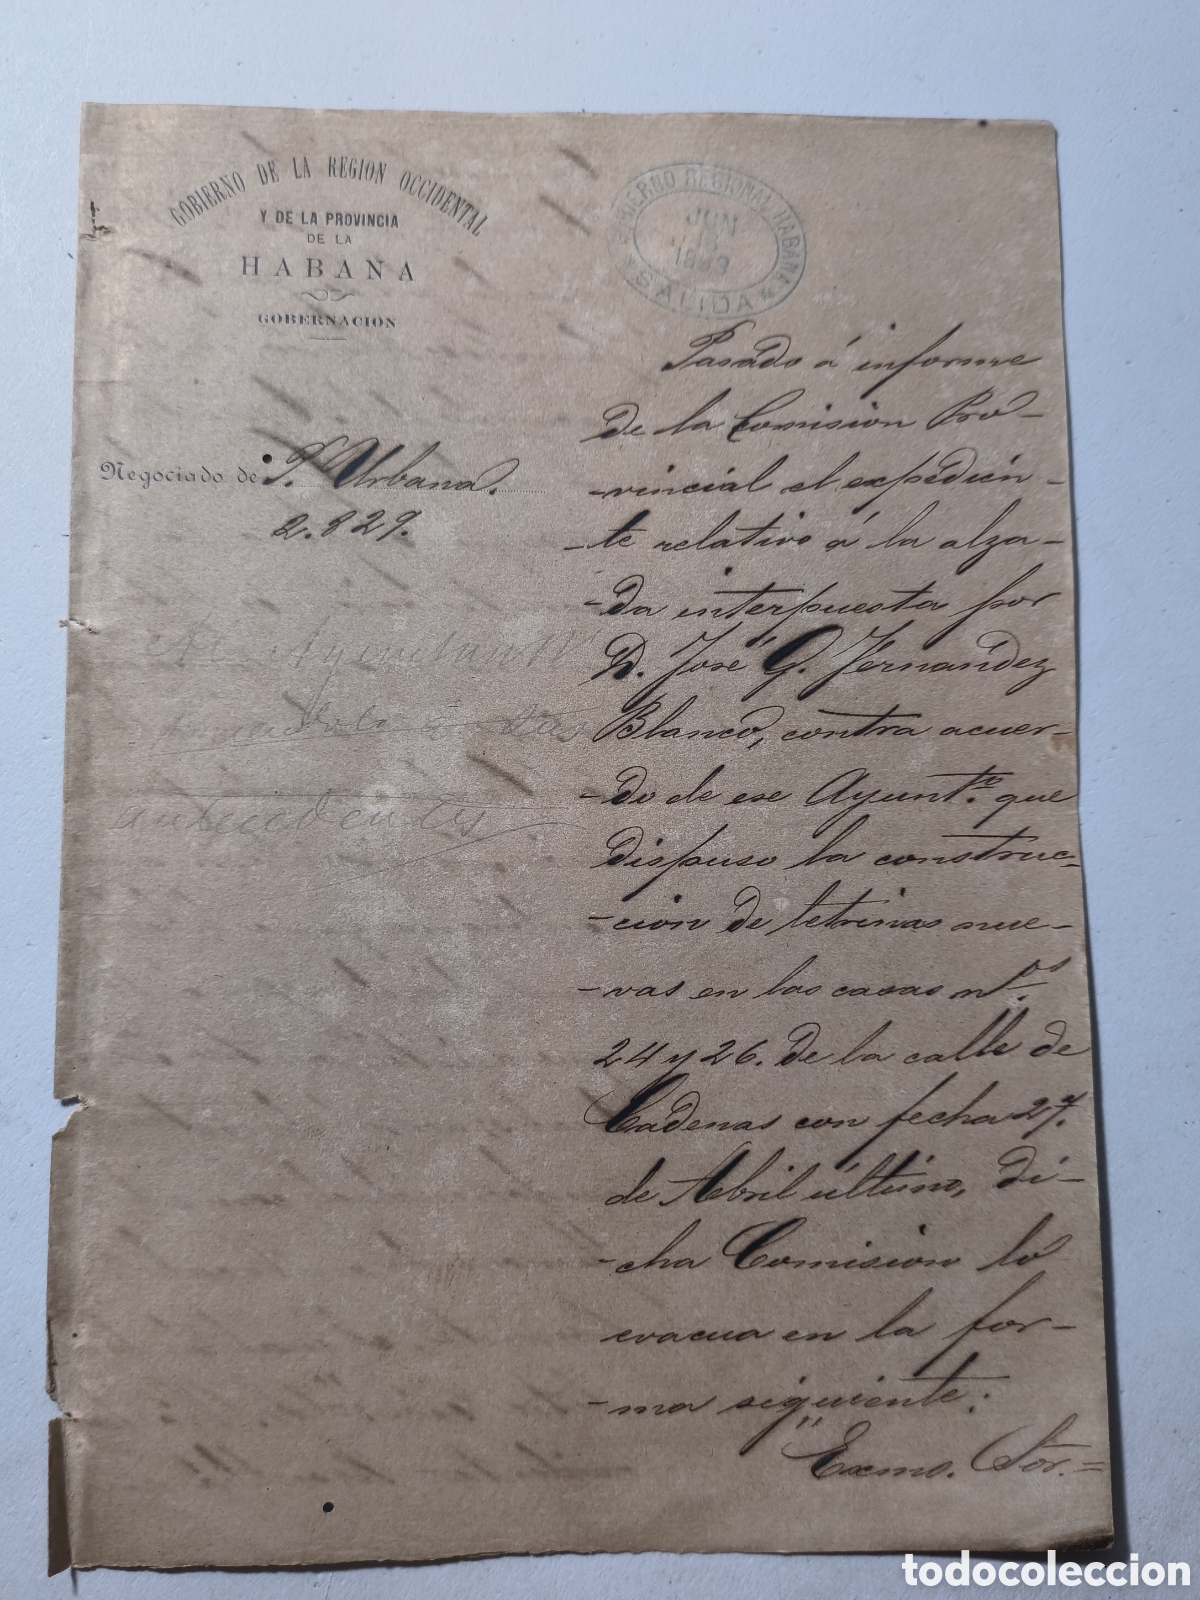 GOBIERNO DE LA REGION OCCIDENTAL
Y DE LA PROVINCIA
DE LA
HABANA
GOBERNACION
GOBIERNO REGIONAL HABANA
JUN
SALIDA
Negociado de P. Urbana.
2.829.
Al Ayuntamto
antecedentes
Pasado á informe
de la Comision Pro-
-vincial el expedien-
-te relativo á la alza-
-da interpuesta por
D. José G. Fernandez
Blanco, contra acuer-
-do de ese Ayunt.to que
dispuso la construc-
-cion de letrinas nue-
-vas en las casas n.os
24 y 26. de la calle de
Cadenas con fecha 27.
de Abril último, di-
-cha Comision lo
evacua en la for-
-ma siguiente:
"Exmo. Sor.=
todocoleccion